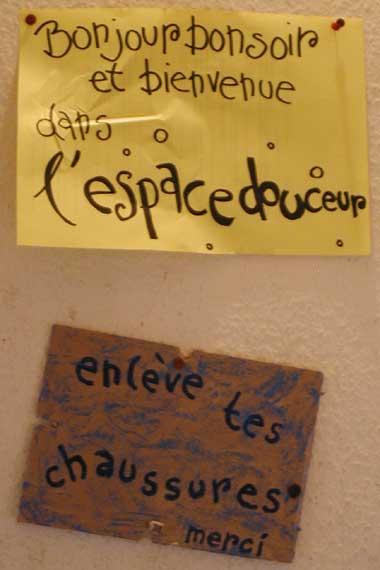 Bonjour bonsoir
et bienvenue
dans
l'espace douceur
enlève tes
chaussures
merci